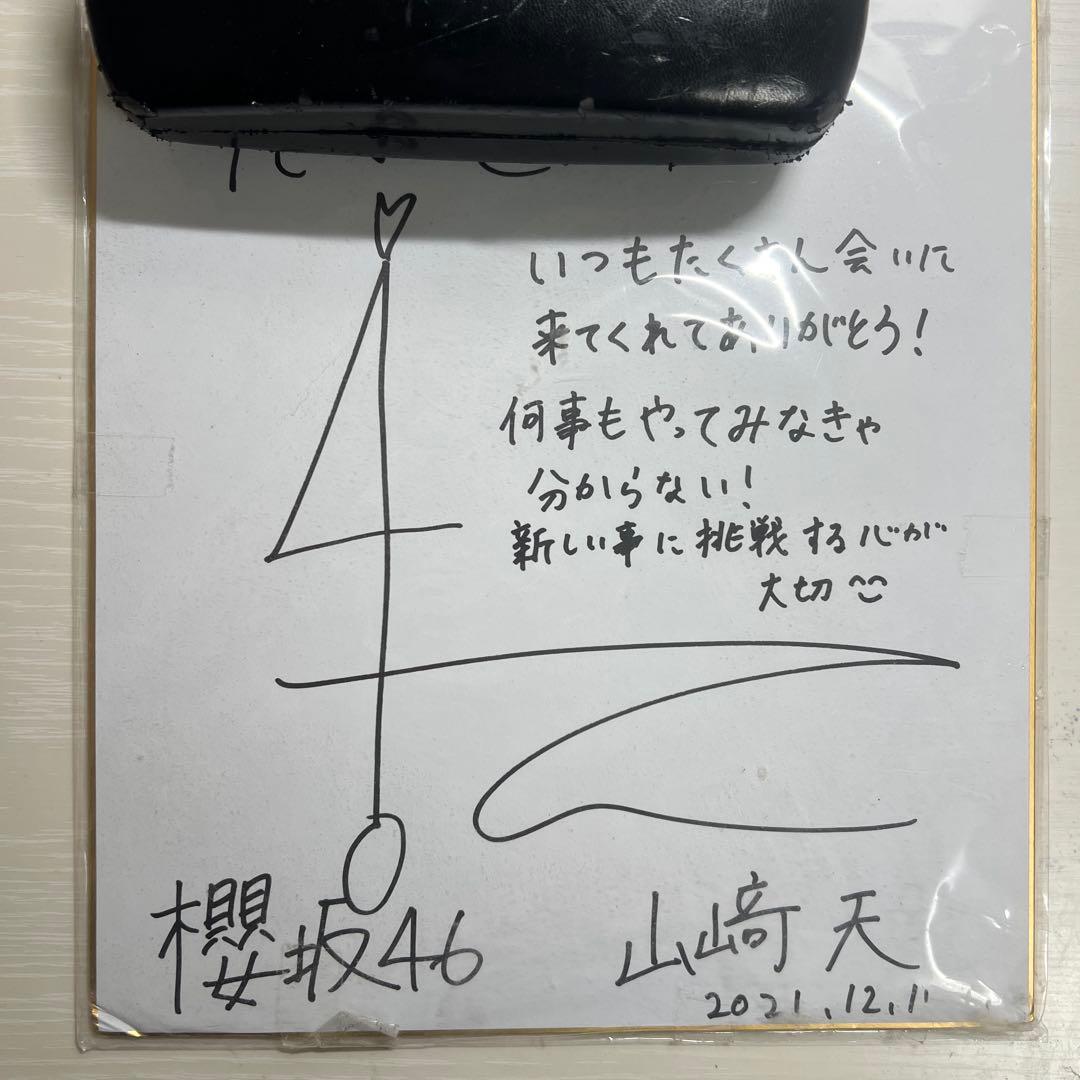 いつもたくさん会いに
来てくれてありがとう!
何事もやってみなきゃ
分からない!
新しい事に挑戦する心が
大切
櫻坂46
山﨑 天
2021.12.11